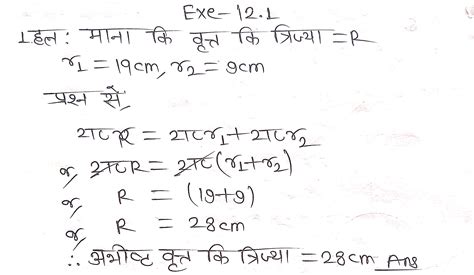 Exe-12.1
1हल: माना कि वृत्त कि त्रिज्या = R
r₁ = 19cm, r₂ = 9cm
प्रश्न सें,
2πR = 2πr₁ + 2πr₂
or, 2πR = 2π(r₁+r₂)
or, R = (19+9)
or, R = 28cm
∴ अभीष्ट वृत्त कि त्रिज्या = 28cm Ans